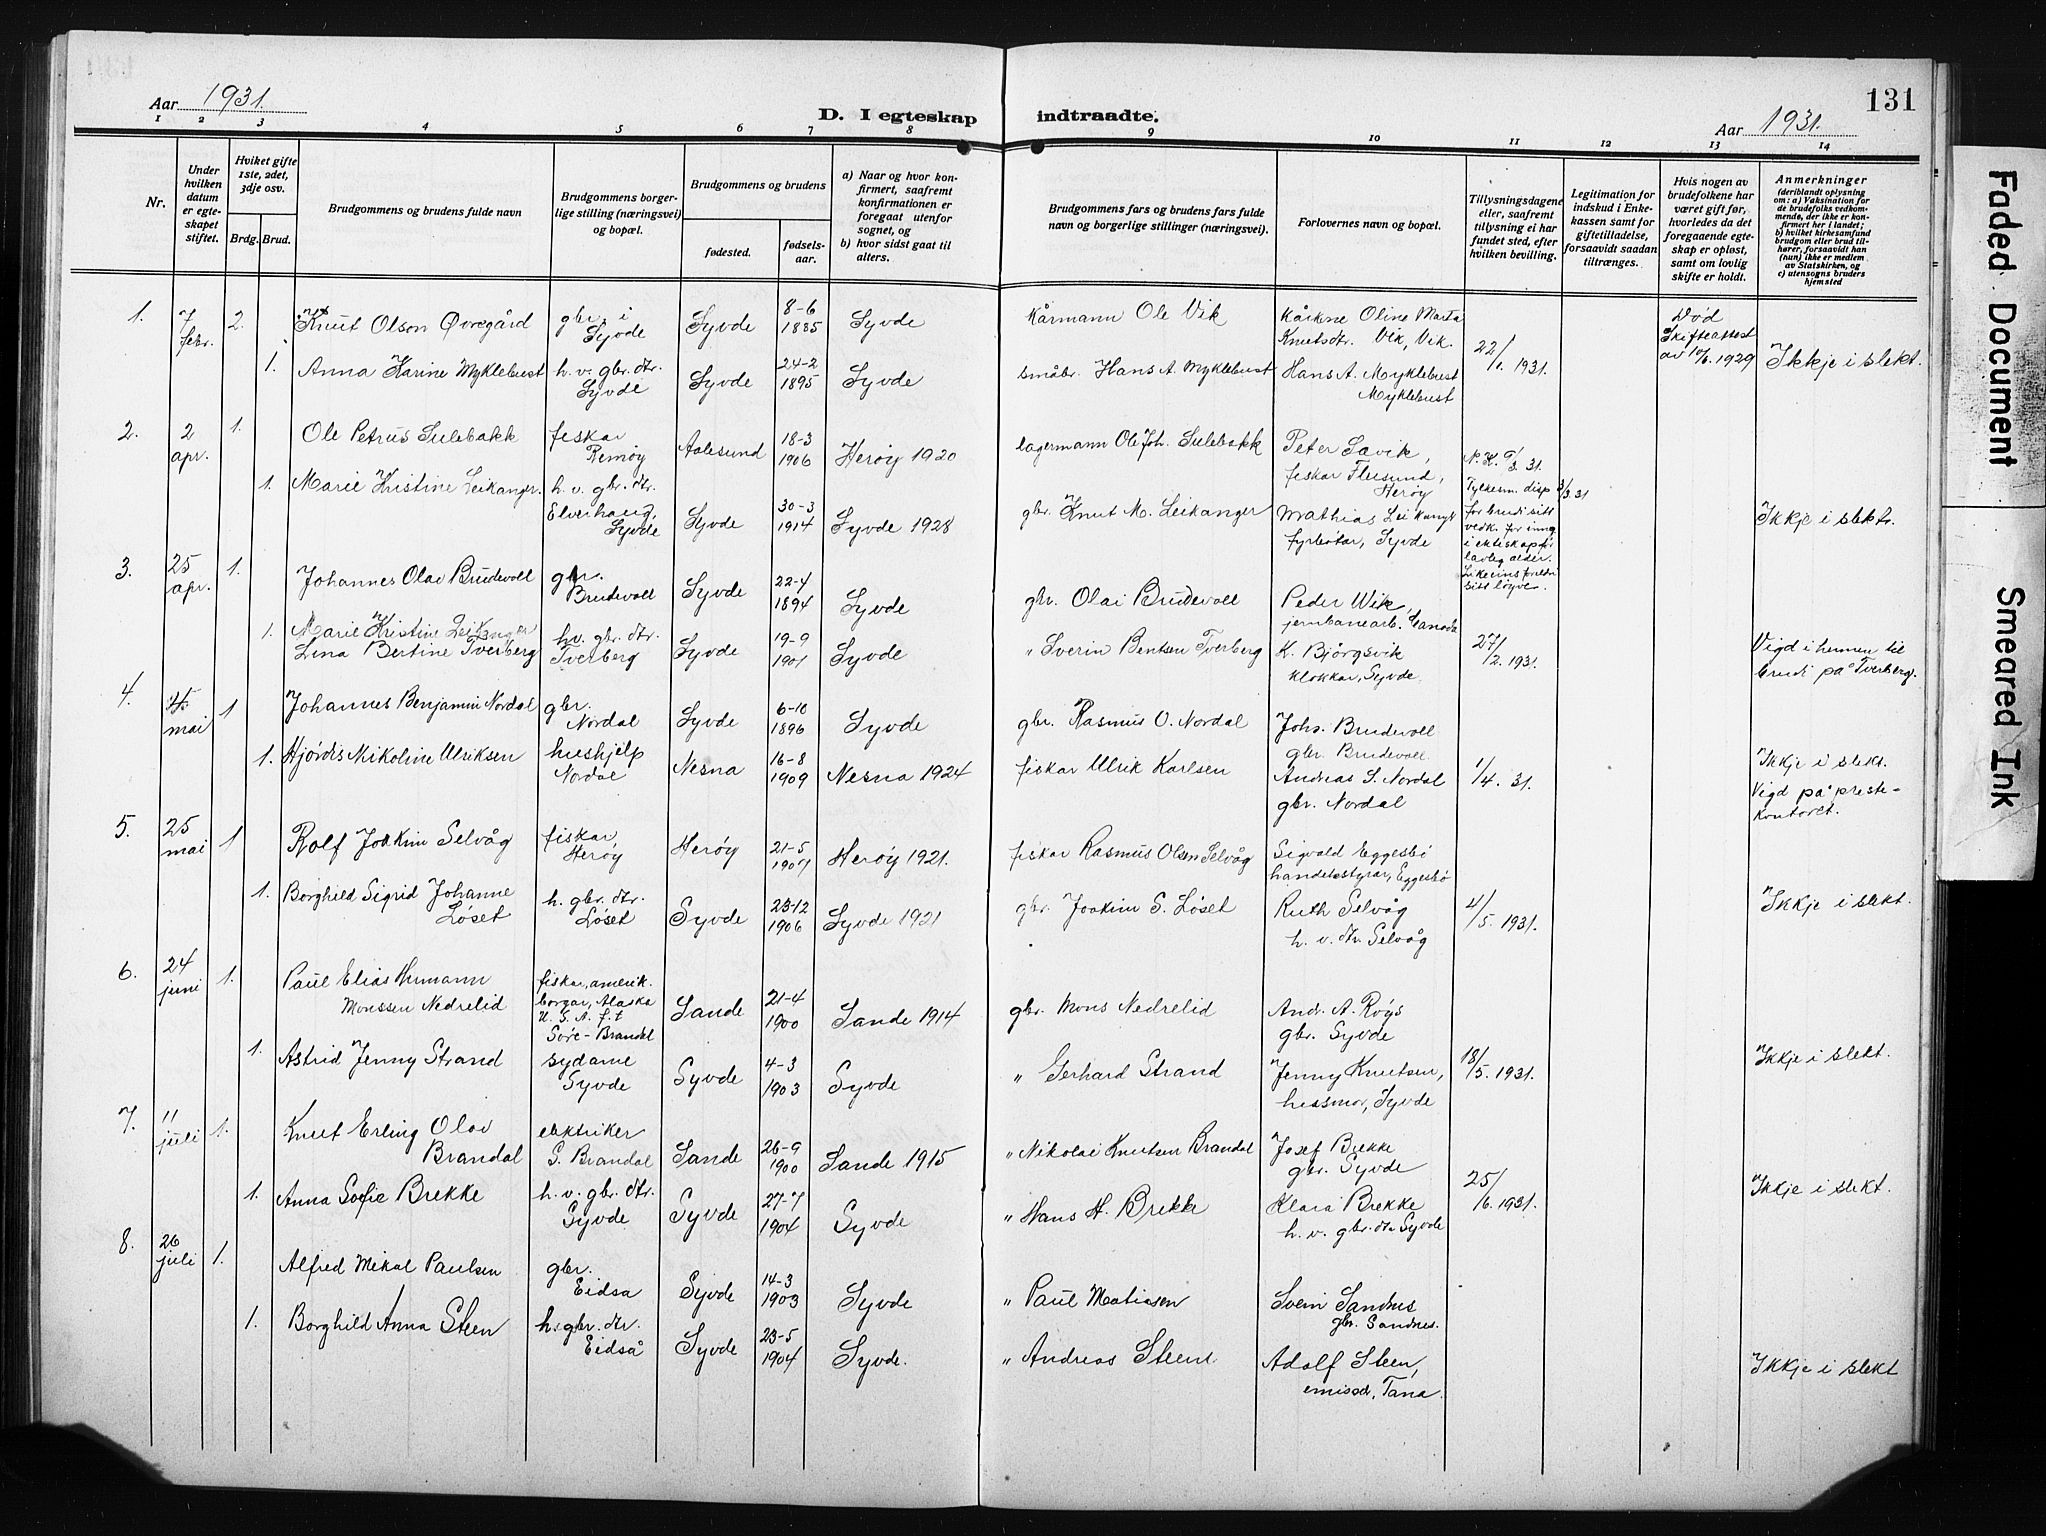 131
Aar 1931.
D. I egteskap indtraadte.
Aar 1931.
1 2 3 4 5 6 7 8 9 10 11 12 13 14
Nr.
Under hvilken datum er egteskapet stiftet.
Hviket gifte 1ste, 2det, 3dje osv.
Brdg. Brud.
Brudgommens og brudens fulde navn
Brudgommens borgerlige stilling (næringsvei) og bopæl.
Brudgommens og brudens
fødested.
fødselsaar.
a) Naar og hvor konfirmert, saafremt konfirmationen er foregaat utenfor sognet, og
b) hvor sidst gaat til alters.
Brudgommens fars og brudens fars fulde navn og borgerlige stillinger (næringsvei).
Forlovernes navn og bopæl.
Tillysningsdagene eller, saafremt tillysning ei har fundet sted, efter hvilken bevilling.
Legitimation for indskud i Enkekassen samt for giftetilladelse, forsaavidt saadan tiltrænges.
Hvis nogen av brudefolkene har været gift før, hvorledes da det foregaaende egteskap er opløst, samt om lovlig skifte er holdt.
Anmerkninger
(deriblandt oplysning om: a) Vaksination for de brudefolks vedkommende, der ikke er konfirmert her i landet; b) hvilket kirkesamfund brudgom eller brud tilhører, forsaavidt han (hun) ikke er medlem av Statskirken, og c) utensogns bruders hjemsted
1. 7 febr. 2. Knut Olson Øvregård gbr. i Syvde Syvde 8-6 1885 Syvde Kårmann Ole Vik Kårkone Oline Marta Knutsdtr. Vik, Vik. Død Skifteattest av 10/6.1929
1. Anna Karine Myklebust h. v. gbr. dtr. Syvde Syvde 24-2 1895 Syvde småbr. Hans A. Myklebust Hans A. Myklebust Myklebust 22/1. 1931. Ikkje i slekt.
2. 2 apr. 1. Ole Petrus Sulebakk fiskar Remøy Aalesund 18-3 1906 Herøy 1920 lagermann Ole Joh. Sulebakk Peter Savik, fiskar Flusund, Herøy
1. Marie Kristine Leikanger. h. v. gbr. dtr. Elverhaug, Syvde Syvde 30-3 1914 Syvde 1928 gbr. Knut M. Leikanger Mathias Leikanger fyrbøtar, Syvde Fylkesm. disp 3/3.31 for brudi sitt vedk. for inng i ektiskap for lavleg alder. Likeeins foreldri sitt løyve. Ikkje i slekt.
3. 25 apr. 1. Johannes Olav Brudevoll gbr. Brudevoll Syvde 22-4 1894 Syvde gbr. Olai Brudevoll Peder Wik, jernbanearb. Canada
1. Marie Kristine Leikanger
Lina Bertine Tverberg hv. gbr. dtr. Tverberg Syvde 19-9 1901 Syvde " Sverin Bentsen Tverberg K. Bjørgsvik klokkar, Syvde. 27/2. 1931. Vigd i heimen til brudi på Tverberg.
4. mai 1 Johannes Benjamin Nordal gbr. Nordal Syvde 6-10 1896 Syvde gbr. Rasmus O. Nordal Johs. Brudevoll gbr. Brudevoll
1. Hjørdis Nikoline Ulriksen hushjelp Nordal Nesna 16-8 1909 Nesna 1924 fiskar Ulrik Karlsen Andreas S. Nordal gbr. Nordal 1/4. 31. Ikkje i slekt. Vigd på prestekontoret.
5. 25 mai 1 Rolf Joakim Selvåg fiskar, Herøy Herøy 21-5 1907 Herøy 1921. fiskar Rasmus Olsen Selvåg Sigvald Eggesbø handelsstyrar, Eggesbø
1. Borghild Sigrid Johanne Løset h. gbr. dtr. Løset Syvde 23-12 1906 Syvde 1921 gbr. Joakim S. Løset Ruth Selvåg h. v. dtr. Selvåg 4/5. 1931. Ikkje i slekt.
6. 24 juni 1. Paul Elias Hermann Monssen Nedrelid fiskar, amerik. borgar, Alaska U. S. A. f.t Søre-Brandal Sande 21-4 1900 Sande 1914 gbr. Mons Nedrelid Andr. A. Røys gbr. Syvde
1. Astrid Jenny Strand sydame Syvde Syvde 4-3 1903 Syvde " Gerhard Strand Jenny Knutsen, husmor, Syvde 18/5. 1931. Ikkje i slekt.
7. 11 juli 1. Knut Erling Olav Brandal elektriker S. Brandal Sande 26-9 1900 Sande 1915 " Nikolai Knutsen Brandal Josef Brekke gbr. Syvde
1. Anna Sofie Brekke h. v. gbr. dtr. Syvde Syvde 27-7 1904 Syvde " Hans H. Brekke Klara Brekke h. v. gbr. dtr Syvde 25/6. 1931. Ikkje i slekt.
8. 26 juli 1. Alfred Mikal Paulsen gbr. Eidsa Syvde 14-3 1903 Syvde " Paul Matiasen Svein Sandnes gbr. Sandnes.
1. Borghild Anna Steen h. gbr. dtr. Eidså Syvde 23-5 1904 Syvde. " Andreas Steen Adolf Steen, emissær, Tana. Ikkje i slekt
Faded Document
Smeared Ink